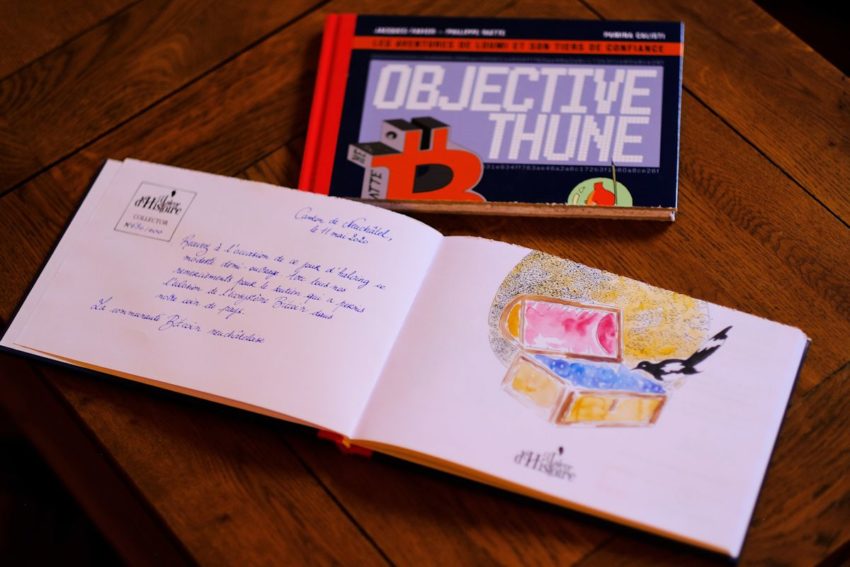 JACQUES FAVIER - PHILIPPE RATTE
LES AVENTURES DE LOUMI ET SON TIERS DE CONFIANCE
OBJECTIVE
THUNE
d'Histoire
COLLECTOR
Canton de Neuchâtel,
le 11 mai 2020
Recevez à l'occasion de ce jour d'halving ce
modeste demi ouvrage. Avec tous nos
remerciements pour le soutien qui a permis
l'éclosion de l'écosystème Bitcoin dans
notre coin de pays.
La communauté Bitcoin neuchâteloise
d'Histoire